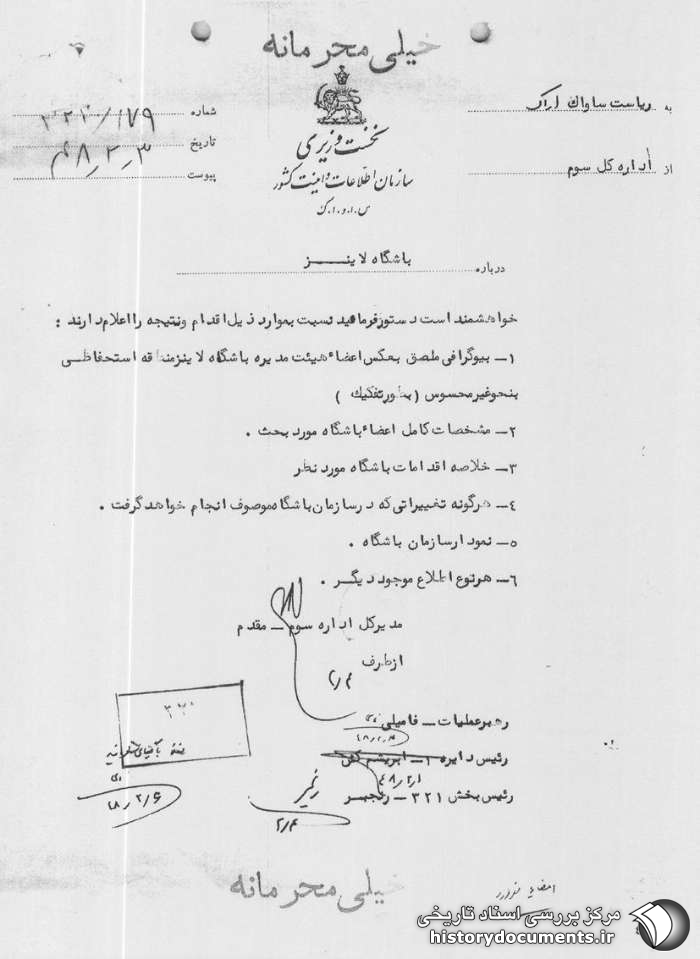 خیلی محرمانه
به ریاست ساواك اراك
از اداره کل سوم
نخست وزیری
سازمان اطلاعات و امنیت کشور
س.ا.و.ا.ک
شماره ۳۲۱/۱۷۹
تاریخ
پیوست
درباره باشگاه لاینــــز
خواهشمند است دستور فرمائید نسبت بموارد ذیل اقدام و نتیجه را اعلام دارند :
۱ــ بیوگرافی ملصق بعکس اعضاء هیئت مدیره باشگاه لاینز منطقه استحفاظی
بنحو غیر محسوس ( بطور تفکیك )
۲ــ مشخصات کامل اعضاء باشگاه مورد بحث .
۳ــ خلاصه اقدامات باشگاه مورد نظر
٤ــ هرگونه تغییراتی که در سازمان باشگاه موصوف انجام خواهد گرفت .
۵ــ نمودار سازمان باشگاه .
۶ــ هر نوع اطلاع موجود دیگـر .
مدیر کل اداره سوم ــ مقدم
از طرف
رهبر عملیات ــ فامیلی
۴۸/۲/۴
رئیس دایره ۱ــ ابریشم کش
رئیس بخش ۳۲۱ ــ رنجبــر
۲/۴
۳۲۰
۴۸/۲/۶
خیلی محرمانه
مرکز بررسی اسناد تاریخی
historydocuments.ir